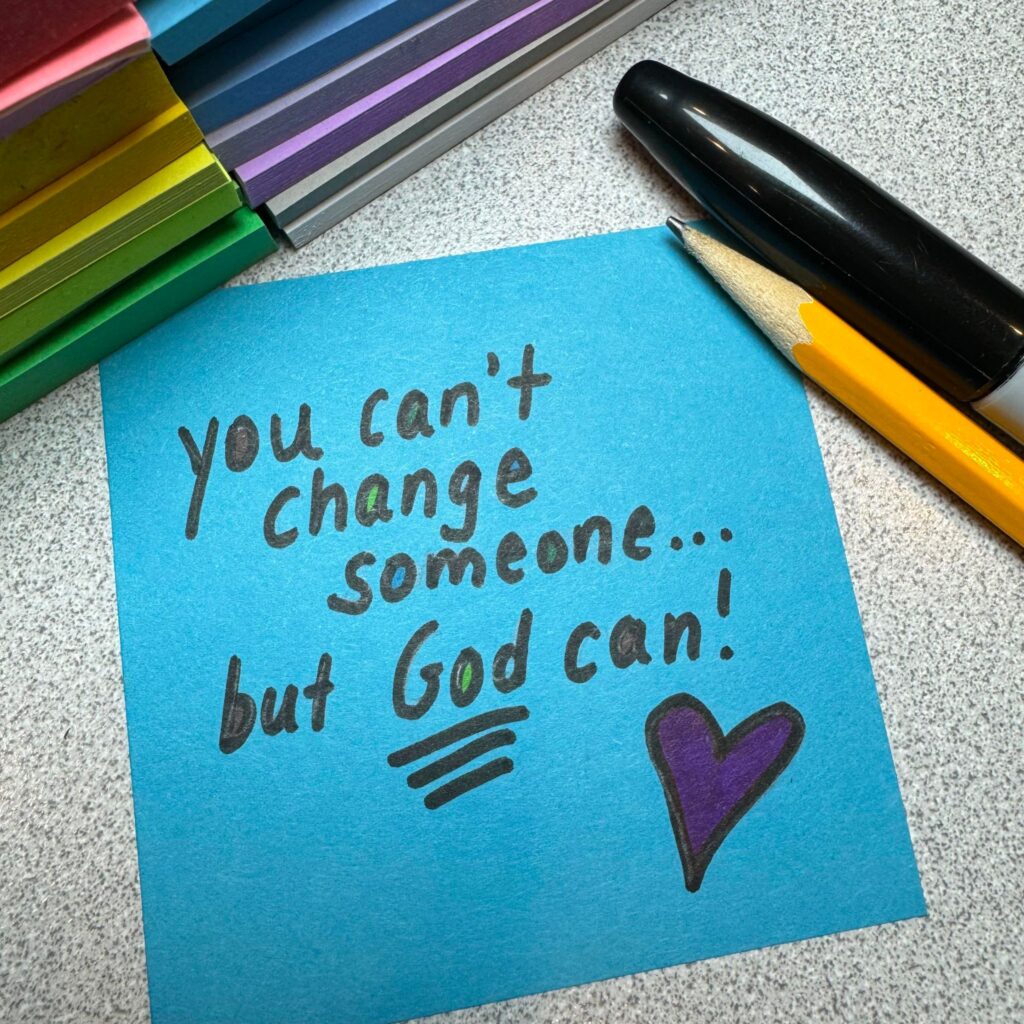 you can't
change
someone...
but God can!